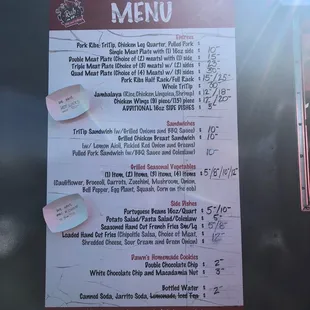 MENU
Entrees
Pork Ribs, TriTip, Chicken Leg Quarter, Pulled Pork
Single Meat Plate with (1) 16oz side $ 10-
Double Meat Plate (Choice of (2) meats) with (1) side $
Triple Meat Plate (Choice of (3) meats) w/ (2) sides $
Quad Meat Plate (Choice of (4) Meats) w/ (3) sides $
Pork Ribs Half Rack/Full Rack $ 15/25-
Whole TriTip $
Jambalaya (Rice, Chicken, Linguica, Shrimp) $ 12/18-
Chicken Wings (9) piece/(15) piece $ 12/20-
ADDITIONAL 16oz SIDE DISHES $
Sandwiches
TriTip Sandwich (w/Grilled Onions and BBQ Sauce) $ 10-
Grilled Chicken Breast Sandwich $ 10-
(w/ Lemon Aioli, Pickled Red Onion and Greens)
Pulled Pork Sandwich (w/BBQ Sauce and Coleslaw) $ 10-
Grilled Seasonal Vegetables
(1) Item, (2) Items, (3) Items, (4) Items $
(Cauliflower, Broccoli, Carrots, Zucchini, Mushroom, Onion,
Bell Pepper, Egg Plant, Squash, Corn on the cob)
Side Dishes
Portuguese Beans 16oz/Quart $ 5-/10-
Potato Salad/Pasta Salad/Coleslaw $ 5-
Seasoned Hand Cut French Fries Sm/Lg $ 5/8-
Loaded Hand Cut Fries (Chipotle Salsa, Choice of Meat, $ 12-
Shredded Cheese, Sour Cream and Green Onion)
Dawn's Homemade Cookies
Double Chocolate Chip $ 2-
White Chocolate Chip and Macadamia Nut $ 3-
Bottled Water $
Canned Soda, Jarrito Soda, Lemonade, Iced Tea $ 2-